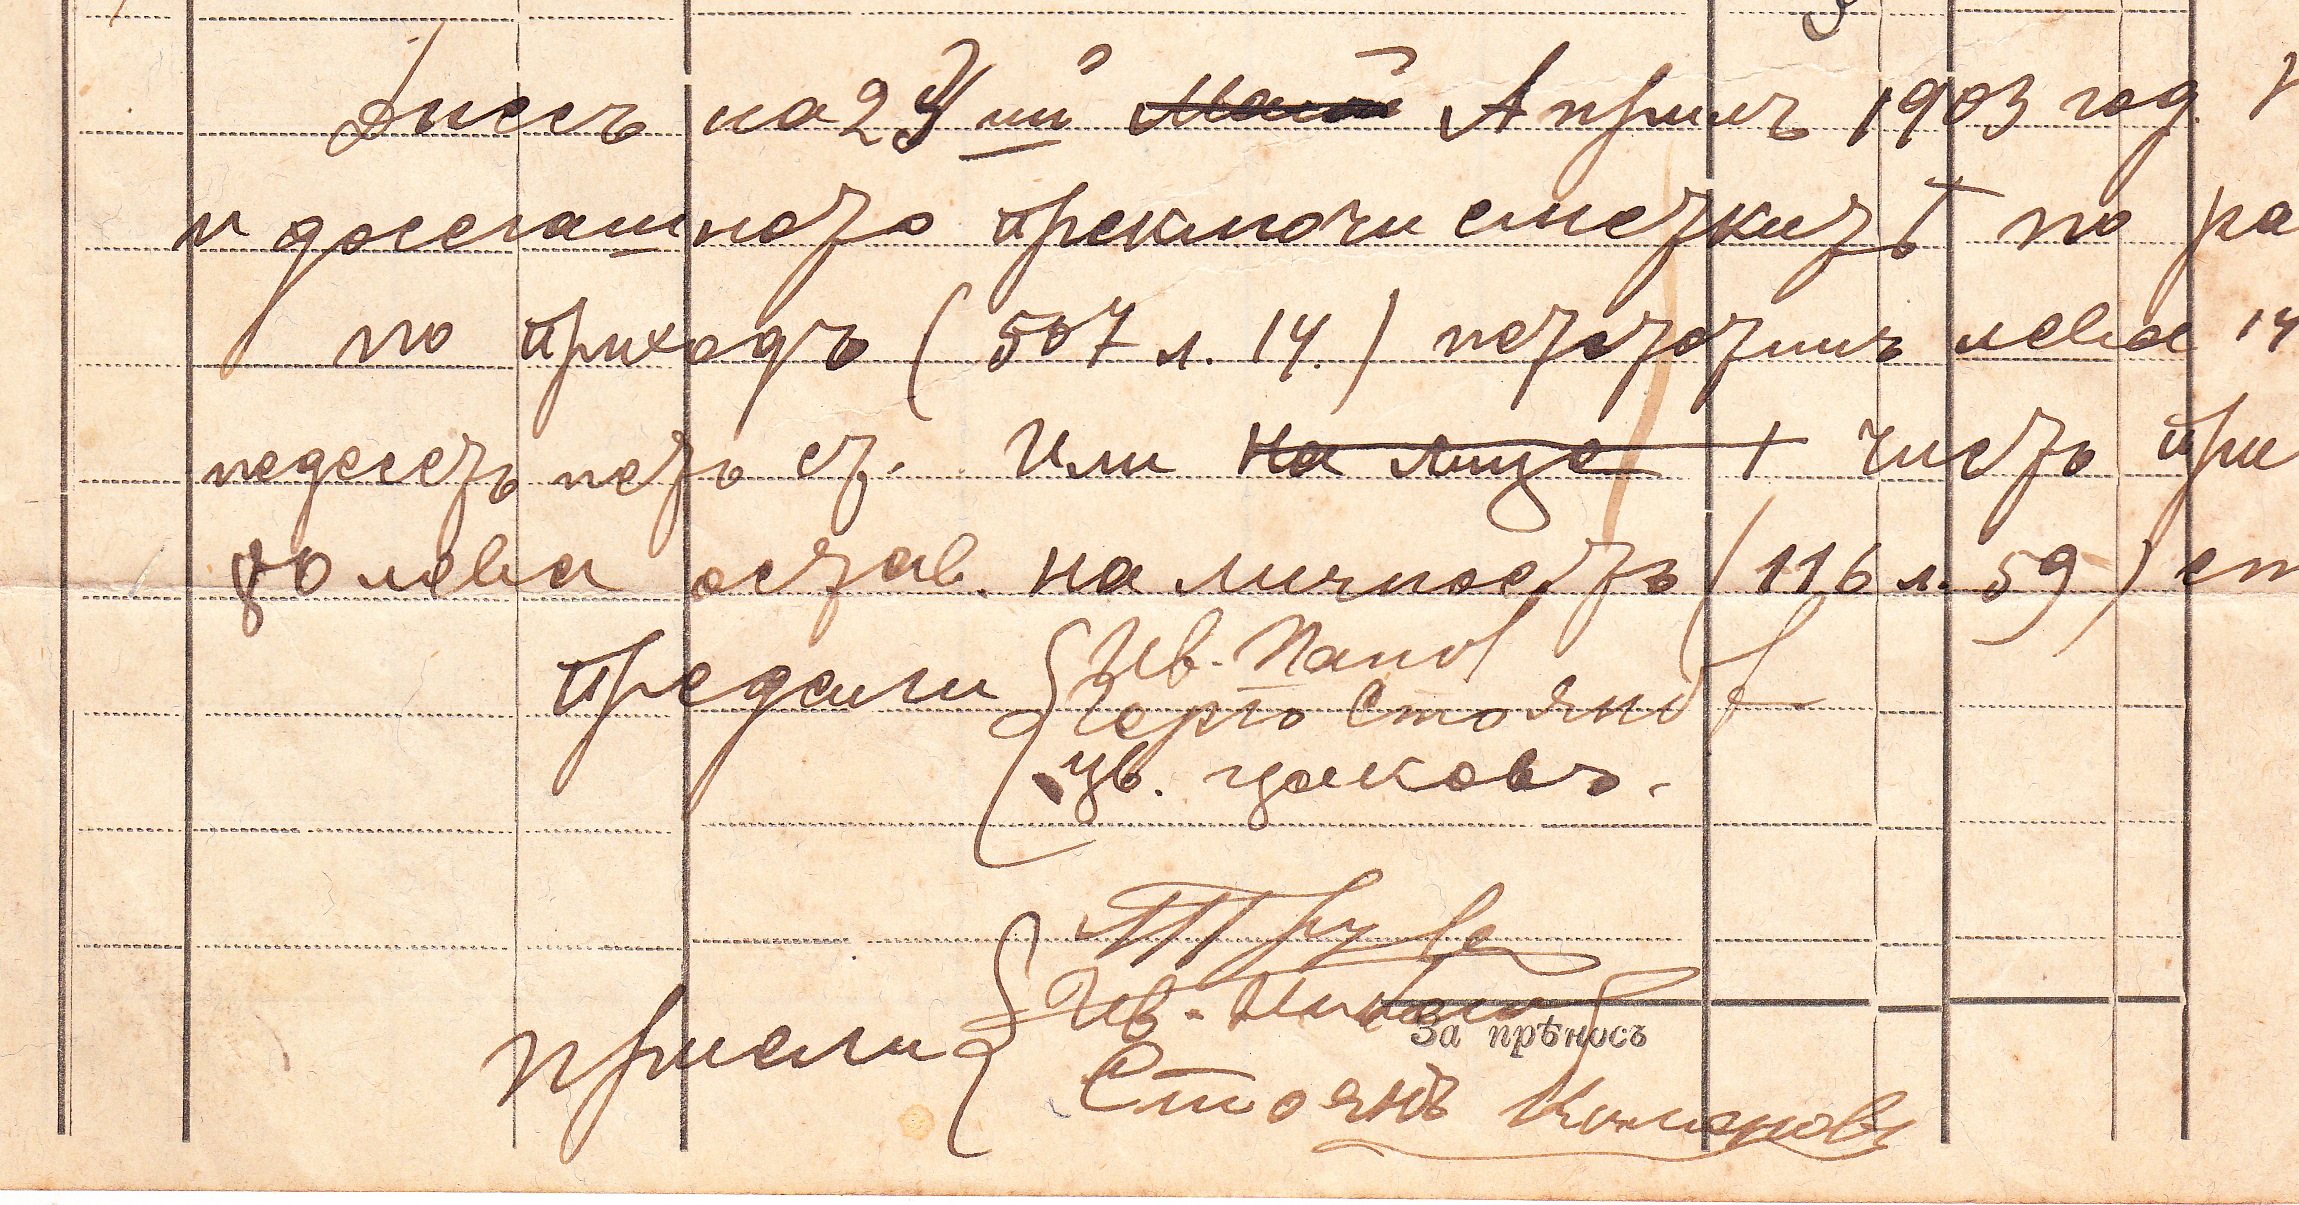 Днесъ на 2 ий Априлъ 1903 год.
и досегашното преключи сметкитѣ по ра
по приходъ (507 л. 14.) петстотинъ лева 14
педесетъ петь ст. Или на лице + чистъ при
80 лева остав. на личность (116 л. 59) ст
Предали { Ив. Попов
Герго Стоянов
Цв. Цаковъ.
Ив.
За прѣносъ
приели {
Стоянъ